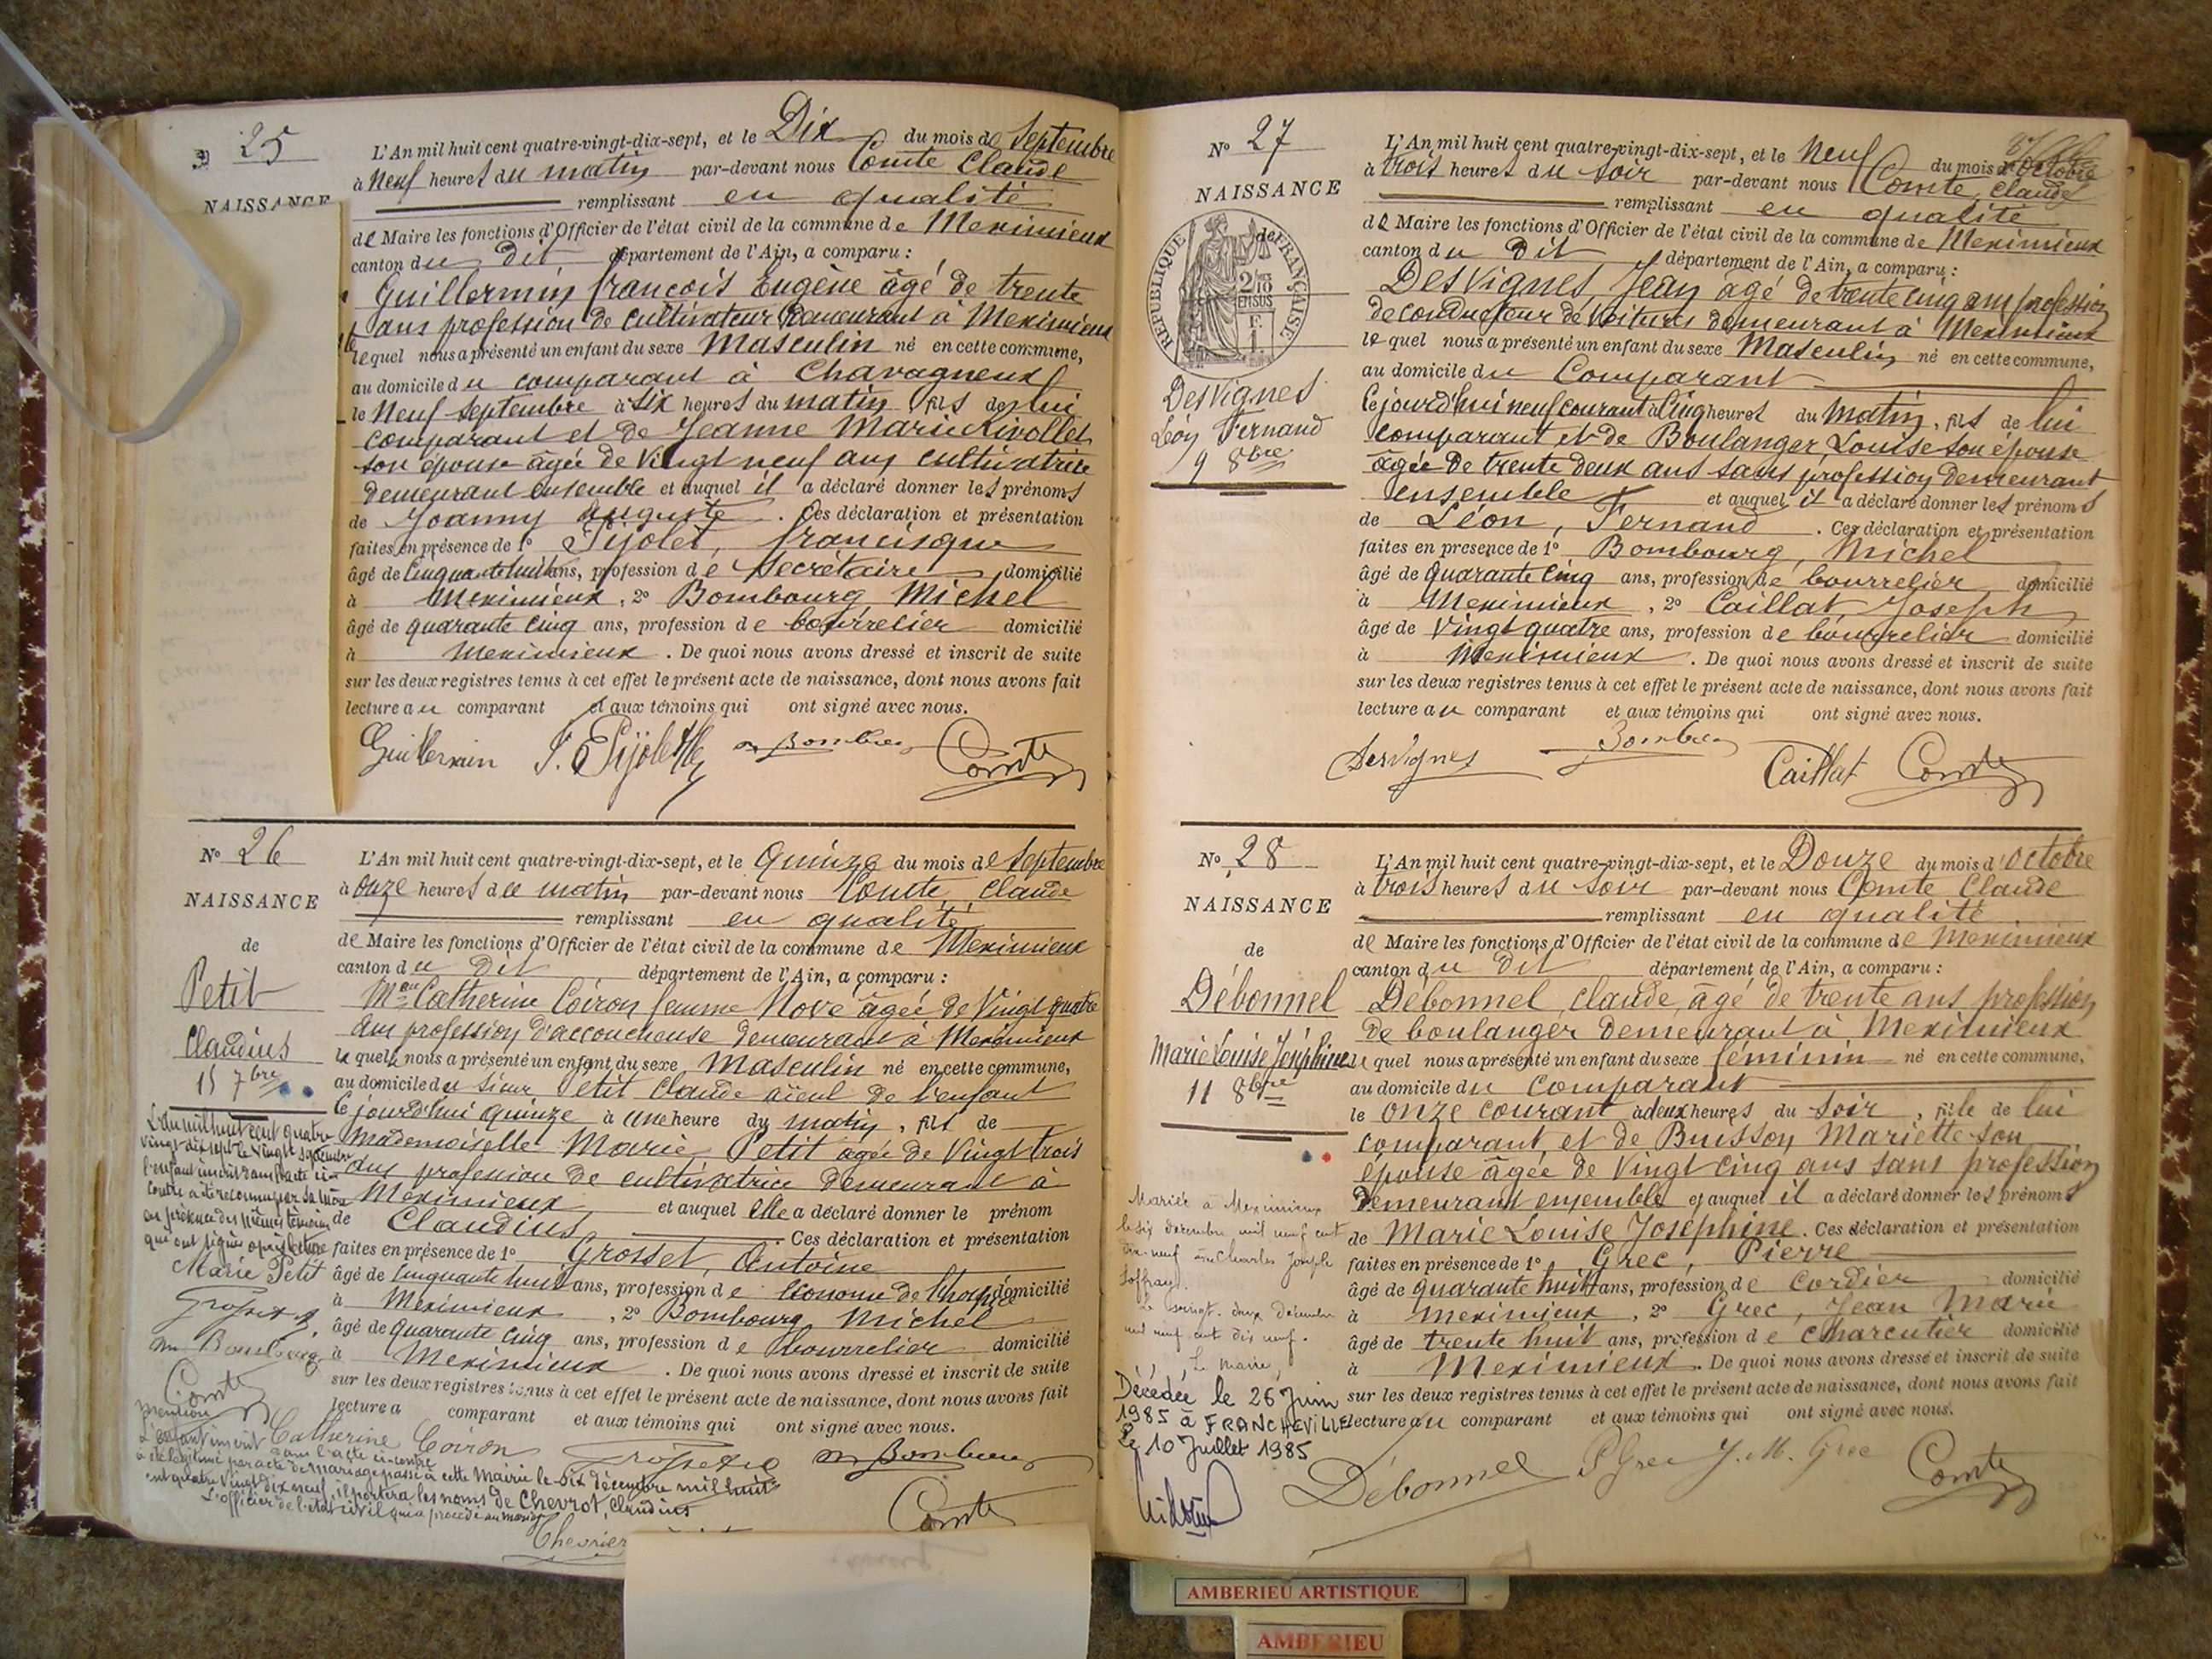 25
NAISSANCE
L'An mil huit cent quatre-vingt-dix-sept, et le Dix du mois de Septembre
à Neuf heures du matin par-devant nous Comte Claude
remplissant en qualité
de Maire les fonctions d'Officier de l'état civil de la commune de Meximieux
canton du dit département de l'Ain, a comparu :
Guillermin, françois Eugène âgé de trente
ans profession de cultivateur demeurant à Meximieux
lequel nous a présenté un enfant du sexe Masculin né en cette commune,
au domicile du comparant à Chavagneux
le Neuf Septembre à Six heures du matin, fils de lui
comparant et de Jeanne Marie Rivollet
son épouse âgée de Vingt neuf ans cultivatrice
demeurant ensemble et auquel il a déclaré donner les prénoms
de Joanny Auguste. Ces déclaration et présentation
faites en présence de 1° Pijolet, francisque
âgé de Cinquante huit ans, profession de Secrétaire domicilié
à Meximieux, 2° Bombourg Michel
âgé de quarante Cinq ans, profession de bourrelier domicilié
à Meximieux. De quoi nous avons dressé et inscrit de suite
sur les deux registres tenus à cet effet le présent acte de naissance, dont nous avons fait
lecture au comparant et aux témoins qui ont signé avec nous.
Guillermin F. Pijolet m Bombourg Comte
N° 26
NAISSANCE
de
Petit
Claudius
15 7bre
L'an mil huit cent quatre
vingt dix sept le Vingt Septembre
l'enfant inscrit dans l'acte ci-
contre a été reconnu par sa mère
en présence des mêmes témoins
qui ont signé après lecture
Marie Petit
Grosset A
m Bombourg
Comte
L'An mil huit cent quatre-vingt-dix-sept, et le Quinze du mois de Septembre
à Onze heures du matin par-devant nous Comte, Claude
remplissant en qualité
de Maire les fonctions d'Officier de l'état civil de la commune de Meximieux
canton du dit département de l'Ain, a comparu :
Catherine Coiron femme Nové âgée de Vingt quatre
ans profession d'accoucheuse demeurant à Meximieux
laquelle nous a présenté un enfant du sexe Masculin né en cette commune,
au domicile du Sieur Petit Claude aïeul de l'enfant
Ce jourd'hui quinze à Une heure du matin, fils de
Mademoiselle Marie Petit âgée de Vingt trois
ans profession de cultivatrice demeurant à
Meximieux et auquel Elle a déclaré donner le prénom
de Claudius. Ces déclaration et présentation
faites en présence de 1° Grosset, Antoine
âgé de Cinquante huit ans, profession de Econome de l'hospice domicilié
à Meximieux, 2° Bombourg Michel
âgé de quarante Cinq ans, profession de bourrelier domicilié
à Meximieux. De quoi nous avons dressé et inscrit de suite
sur les deux registres tenus à cet effet le présent acte de naissance, dont nous avons fait
lecture a comparant et aux témoins qui ont signé avec nous.
Catherine Coiron Grosset A m Bombourg
Comte
Mention
L'enfant inscrit dans l'acte ci-contre
a été légitimé par acte de mariage passé à cette Mairie le six décembre mil huit
cent quatre vingt dix neuf, il portera les noms de Chevrot, Claudius
L'officier de l'état civil qui a procédé au mariage
N° 27
NAISSANCE
REPUBLIQUE FRANÇAISE
Desvignes
Léon Fernand
9 8bre
L'An mil huit cent quatre-vingt-dix-sept, et le Neuf du mois d'Octobre
à trois heures du soir par-devant nous Comte, Claude
remplissant en qualité
de Maire les fonctions d'Officier de l'état civil de la commune de Meximieux
canton du dit département de l'Ain, a comparu :
Desvignes, Jean âgé de trente cinq ans profession
de conducteur de Voitures demeurant à Meximieux
lequel nous a présenté un enfant du sexe Masculin né en cette commune,
au domicile du Comparant
Ce jourd'hui neuf courant à Cinq heures du matin, fils de lui
comparant et de Boulanger, Louise son épouse
âgée de trente deux ans sans profession demeurant
ensemble et auquel il a déclaré donner les prénoms
de Léon, Fernand. Ces déclaration et présentation
faites en présence de 1° Bombourg, Michel
âgé de Quarante Cinq ans, profession de bourrelier domicilié
à Meximieux, 2° Caillat Joseph
âgé de Vingt quatre ans, profession de bourrelier domicilié
à Meximieux. De quoi nous avons dressé et inscrit de suite
sur les deux registres tenus à cet effet le présent acte de naissance, dont nous avons fait
lecture au comparant et aux témoins qui ont signé avec nous.
Desvignes Bombourg Caillat Comte
N° 28
NAISSANCE
de
Débonnel
Marie Louise Joséphine
11 8bre
Mariée à Meximieux
le six décembre mil neuf cent
dix-neuf avec Charles Joseph
Le vingt-deux Décembre
mil neuf cent dix neuf.
Le Maire,
Décédée le 26 Juin
1985 à FRANCHEVILLE
Le 10 Juillet 1985
L'An mil huit cent quatre-vingt-dix-sept, et le Douze du mois d'Octobre
à trois heures du soir par-devant nous Comte Claude
remplissant en qualité
de Maire les fonctions d'Officier de l'état civil de la commune de Meximieux
canton du dit département de l'Ain, a comparu :
Débonnel, Claude, âgé de trente ans profession
de boulanger demeurant à Meximieux
lequel nous a présenté un enfant du sexe féminin né en cette commune,
au domicile du comparant
le onze courant à deux heures du Soir, fille de lui
comparant et de Buisson Mariette son
épouse âgée de Vingt Cinq ans sans profession
demeurant ensemble et auquel il a déclaré donner les prénoms
de Marie Louise Joséphine. Ces déclaration et présentation
faites en présence de 1° Grec, Pierre
âgé de quarante huit ans, profession de Cordier domicilié
à Meximieux, 2° Grec, Jean Marie
âgé de trente huit ans, profession de charcutier domicilié
à Meximieux. De quoi nous avons dressé et inscrit de suite
sur les deux registres tenus à cet effet le présent acte de naissance, dont nous avons fait
lecture au comparant et aux témoins qui ont signé avec nous.
Débonnel P Grec J. M. Grec Comte
AMBERIEU ARTISTIQUE
AMBERIEU